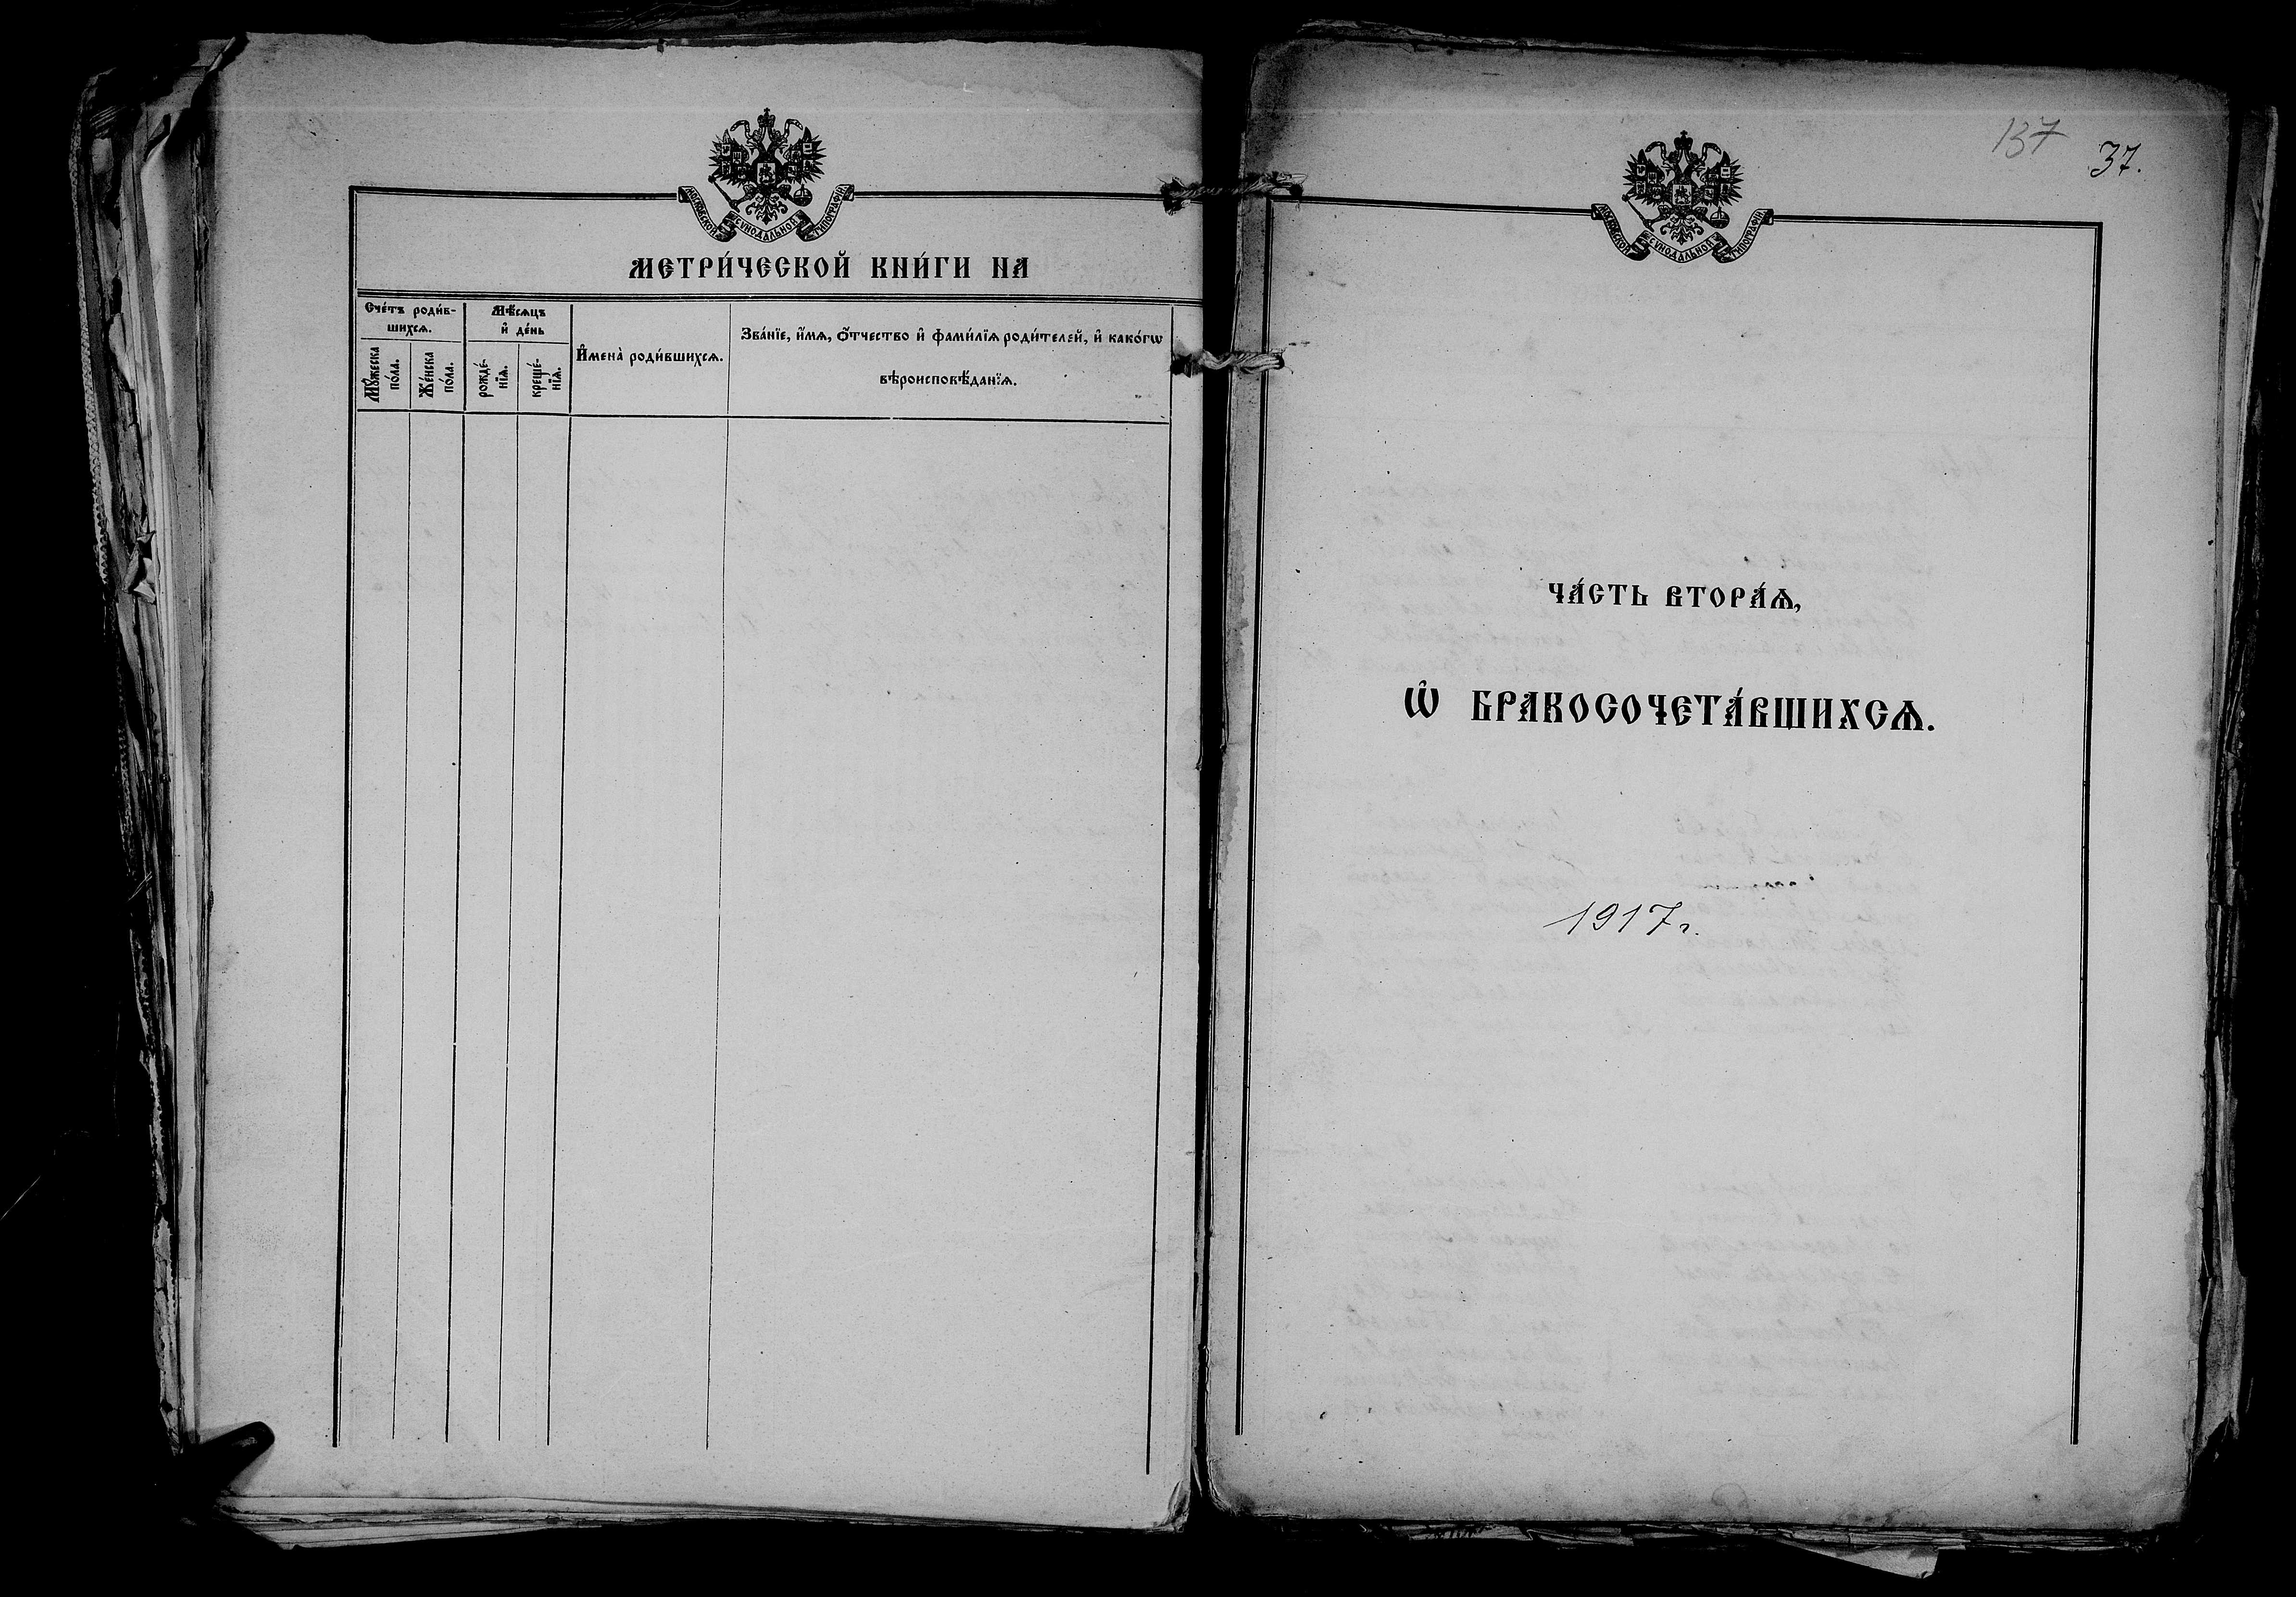 МОСКОВСКОЙ СѴНОДАЛЬНОЙ ТИПОГРАФІИ
МЕТРИ́ЧЕСКОЙ КНИ́ГИ НА
Сче́тъ роди́в-
шихсѧ.
Мѣ́сѧцъ
и҆ де́нь
И҆мена̀ роди́вшихсѧ.
Зва́нїе, и҆́мѧ, ѻ҆́тчество и҆ фами́лїѧ роди́телей, и҆ како́гѡ
вѣроисповѣ́данїѧ.
Мꙋ́жеска
по́ла.
Же́нска
по́ла.
рожде́-
нїѧ.
креще́-
нїѧ.
137
37.
МОСКОВСКОЙ СѴНОДАЛЬНОЙ ТИПОГРАФІИ
ЧА́СТЬ ВТОРА́Ѧ,
Ѡ҆ БРАКОСОЧЕТА́ВШИХСѦ.
1917 г.